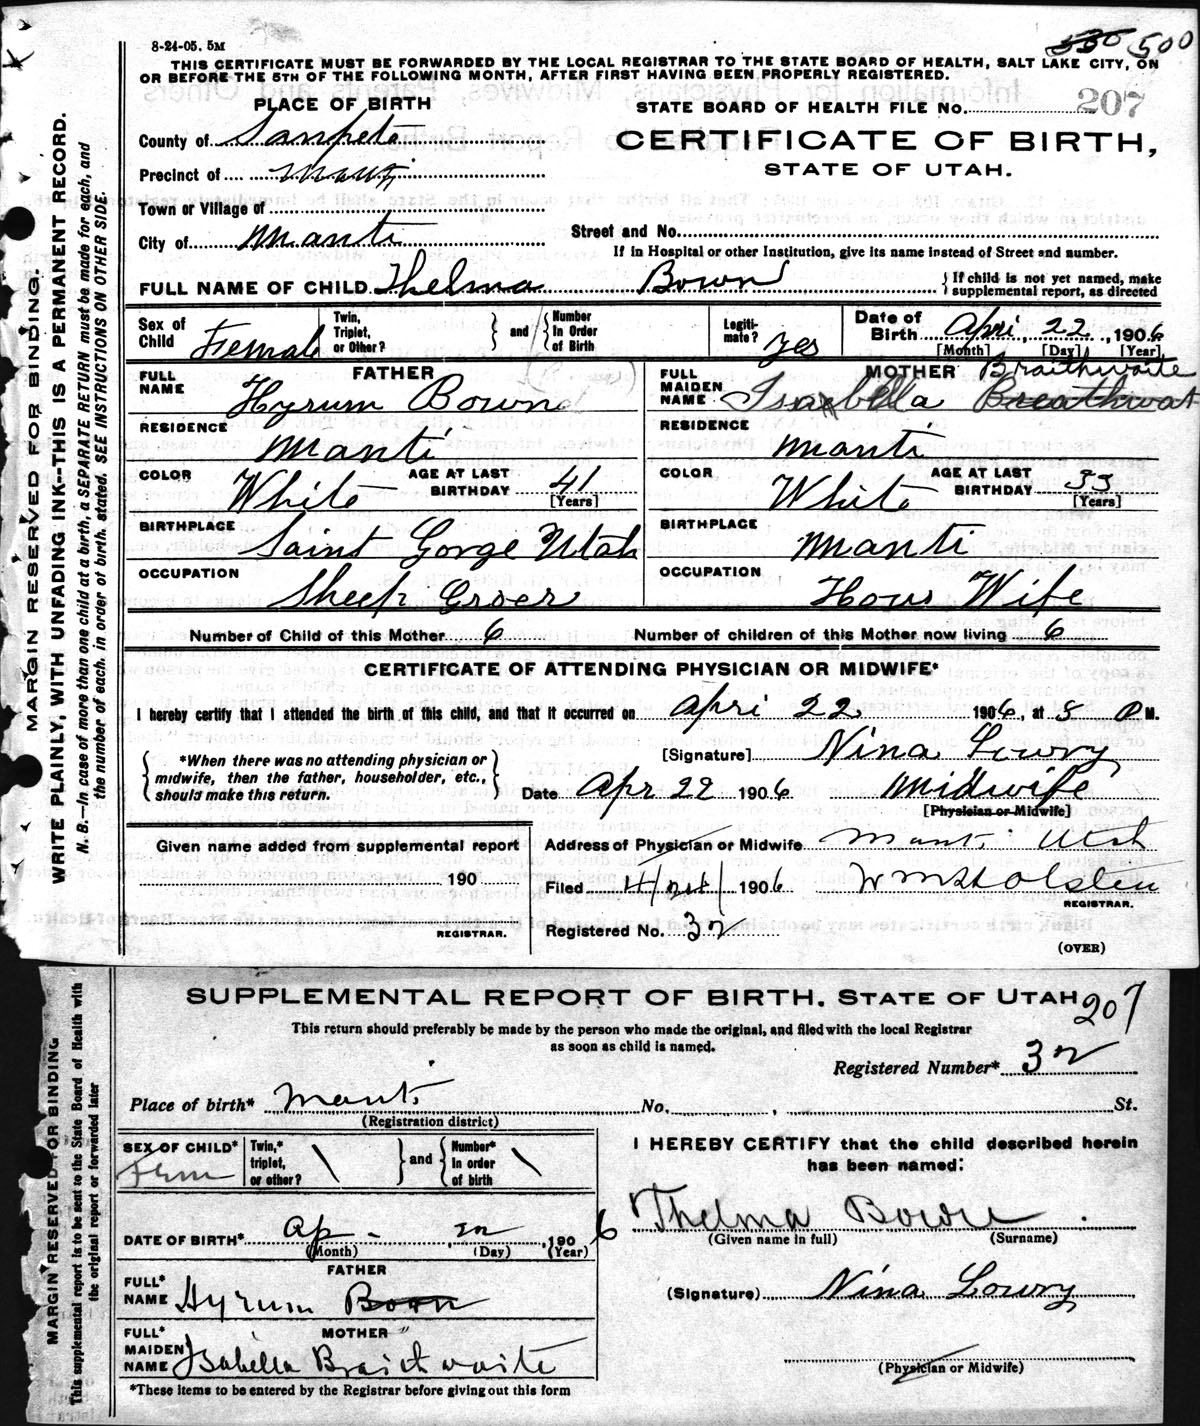 8-24-05. 5M
530 500
THIS CERTIFICATE MUST BE FORWARDED BY THE LOCAL REGISTRAR TO THE STATE BOARD OF HEALTH, SALT LAKE CITY, ON
OR BEFORE THE 5TH OF THE FOLLOWING MONTH, AFTER FIRST HAVING BEEN PROPERLY REGISTERED.
PLACE OF BIRTH
STATE BOARD OF HEALTH FILE No. 207
County of Sanpete
CERTIFICATE OF BIRTH,
STATE OF UTAH.
Precinct of Manti
Town or Village of
City of Manti
Street and No.
If in Hospital or other Institution, give its name instead of Street and number.
FULL NAME OF CHILD Thelma Bown
{If child is not yet named, make
supplemental report, as directed
Sex of Child Female
Twin, Triplet, or Other? } and { Number In Order of Birth
Legiti-mate? yes
Date of Birth Apri 22, 1906
[Month] [Day] [Year]
FATHER
FULL NAME Hyrum Bown
RESIDENCE Manti
COLOR White AGE AT LAST BIRTHDAY 41 [Years]
BIRTHPLACE Saint Gorge Utah
OCCUPATION Sheep Groer
MOTHER
FULL MAIDEN NAME Isabella Breathwat Braithwaite
RESIDENCE Manti
COLOR White AGE AT LAST BIRTHDAY 33 [Years]
BIRTHPLACE Manti
OCCUPATION Hous Wife
Number of Child of this Mother 6 Number of children of this Mother now living 6
CERTIFICATE OF ATTENDING PHYSICIAN OR MIDWIFE*
I hereby certify that I attended the birth of this child, and that it occurred on Apri 22 1906, at 8 P M.
*When there was no attending physician or
midwife, then the father, householder, etc.,
should make this return.
[Signature] Nina Lowry
Date Apr 22 1906 Midwife
[Physician or Midwife]
Given name added from supplemental report
190
REGISTRAR.
Address of Physician or Midwife Manti Utah
Filed 1906 Wm Holsten
REGISTRAR.
Registered No. 32
(OVER)
MARGIN RESERVED FOR BINDING.
WRITE PLAINLY, WITH UNFADING INK--THIS IS A PERMANENT RECORD.
N. B.—In case of more than one child at a birth, a SEPARATE RETURN must be made for each, and
the number of each, in order of birth, stated. SEE INSTRUCTIONS ON OTHER SIDE.
SUPPLEMENTAL REPORT OF BIRTH. STATE OF UTAH 207
This return should preferably be made by the person who made the original, and filed with the local Registrar
as soon as child is named.
Registered Number* 32
Place of birth* Manti No. , St.
(Registration district)
SEX OF CHILD* Fem
Twin,* triplet, or other? } and { Number* In order of birth
DATE OF BIRTH* Ap. 22, 1906
(Month) (Day) (Year)
FATHER
FULL* NAME Hyrum Born
MOTHER
FULL* MAIDEN NAME Isabella Braithwaite
*These items to be entered by the Registrar before giving out this form
I HEREBY CERTIFY that the child described herein
has been named:
Thelma Bown.
(Given name in full) (Surname)
(Signature) Nina Lowry
(Physician or Midwife)
MARGIN RESERVED FOR BINDING
This supplemental report is to be sent to the State Board of Health with
the original report or forwarded later